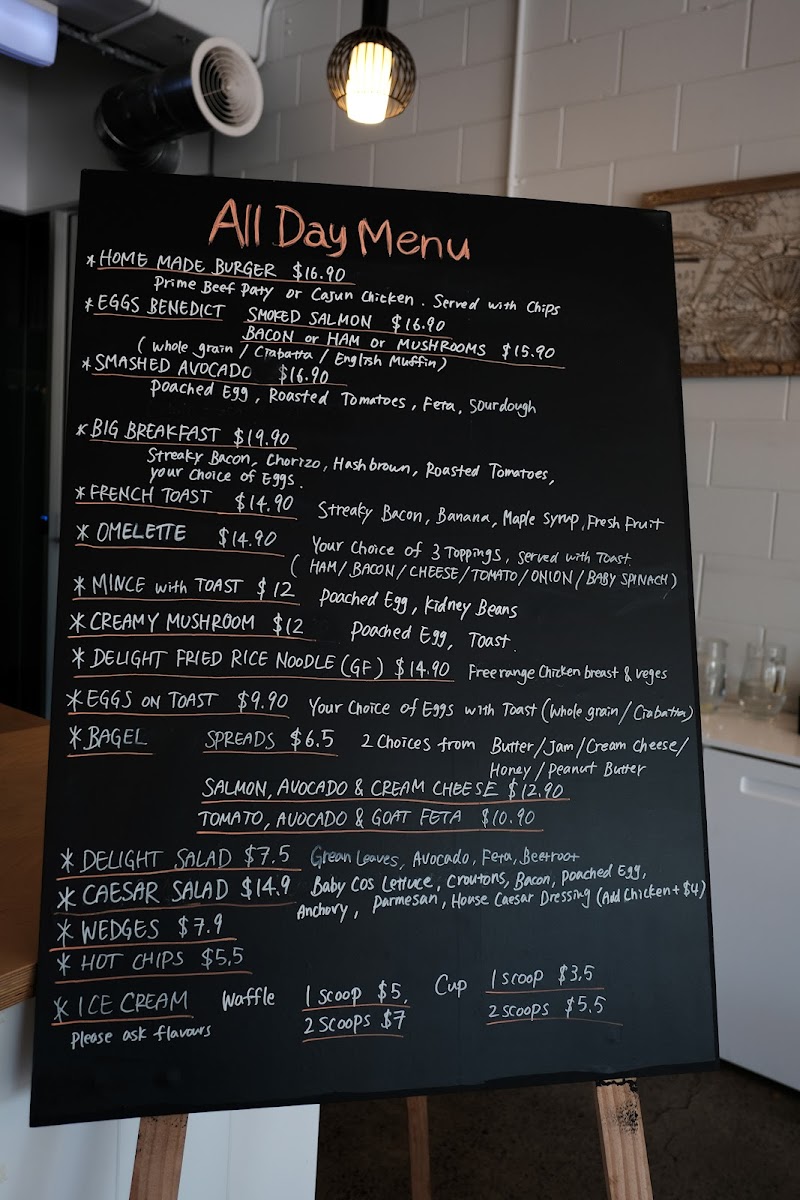 All Day Menu
* HOME MADE BURGER $16.90
Prime Beef Paty or Cajun Chicken. Served with Chips
* EGGS BENEDICT SMOKED SALMON $16.90
BACON or HAM or MUSHROOMS $15.90
(whole grain / Ciabatta / English Muffin)
* SMASHED AVOCADO $16.90
Poached Egg, Roasted Tomatoes, Feta, Sourdough
* BIG BREAKFAST $19.90
Streaky Bacon, Chorizo, Hashbrown, Roasted Tomatoes,
your Choice of Eggs.
* FRENCH TOAST $14.90 Streaky Bacon, Banana, Maple Syrup, Fresh Fruit
* OMELETTE $14.90 Your Choice of 3 Toppings, Served with Toast.
(HAM / BACON / CHEESE / TOMATO / ONION / BABY SPINACH)
* MINCE with TOAST $12 Poached Egg, Kidney Beans
* CREAMY MUSHROOM $12 Poached Egg, Toast.
* DELIGHT FRIED RICE NOODLE (GF) $14.90 Free range Chicken breast & veges
* EGGS on TOAST $9.90 Your Choice of Eggs with Toast (Whole grain / Ciabatta)
* BAGEL SPREADS $6.5 2 Choices from Butter / Jam / Cream Cheese /
Honey / Peanut Butter
SALMON, AVOCADO & CREAM CHEESE $12.90
TOMATO, AVOCADO & GOAT FETA $10.90
* DELIGHT SALAD $7.5 Grean Leaves, Avocado, Feta, Beetroot
* CAESAR SALAD $14.9 Baby Cos Lettuce, Croutons, Bacon, Poached Egg,
Anchovy, Parmesan, House Caesar Dressing (Add Chicken + $4)
* WEDGES $7.9
* HOT CHIPS $5.5
* ICE CREAM Waffle 1 SCOOP $5, Cup 1 SCOOP $3.5
Please ask flavours 2 SCOOPS $7 2 SCOOPS $5.5